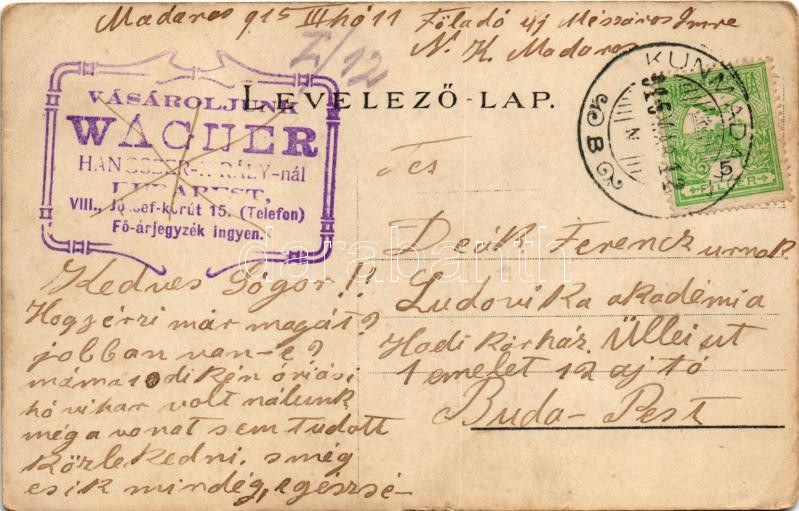 Madaras 915 III hó 11 Föladó ifj Mészáros Imre
N. K. Madaras
I/12
LEVELEZŐ-LAP.
VÁSÁROLJUNK
WAGNER
HANGSZER-KIRÁLY-nál
BUDAPEST,
VIII., József-körút 15. (Telefon)
Fő-árjegyzék ingyen.
KUNMADA
915
12
N
B
5
FILLÉR
Tes
Deák Ferencz urnak
Ludovika akadémia
Hadi kórház Üllei ut
1 emelet 12 ajtó
Buda-Pest
Kedves Gógor!!
Hogy érzi már magát?
jobban van-e?
máma 10 dikén óriási
hóvihar volt nálunk
még a vonat sem tudott
közlekedni. s még
esik mindég, egéssé-
darabanth